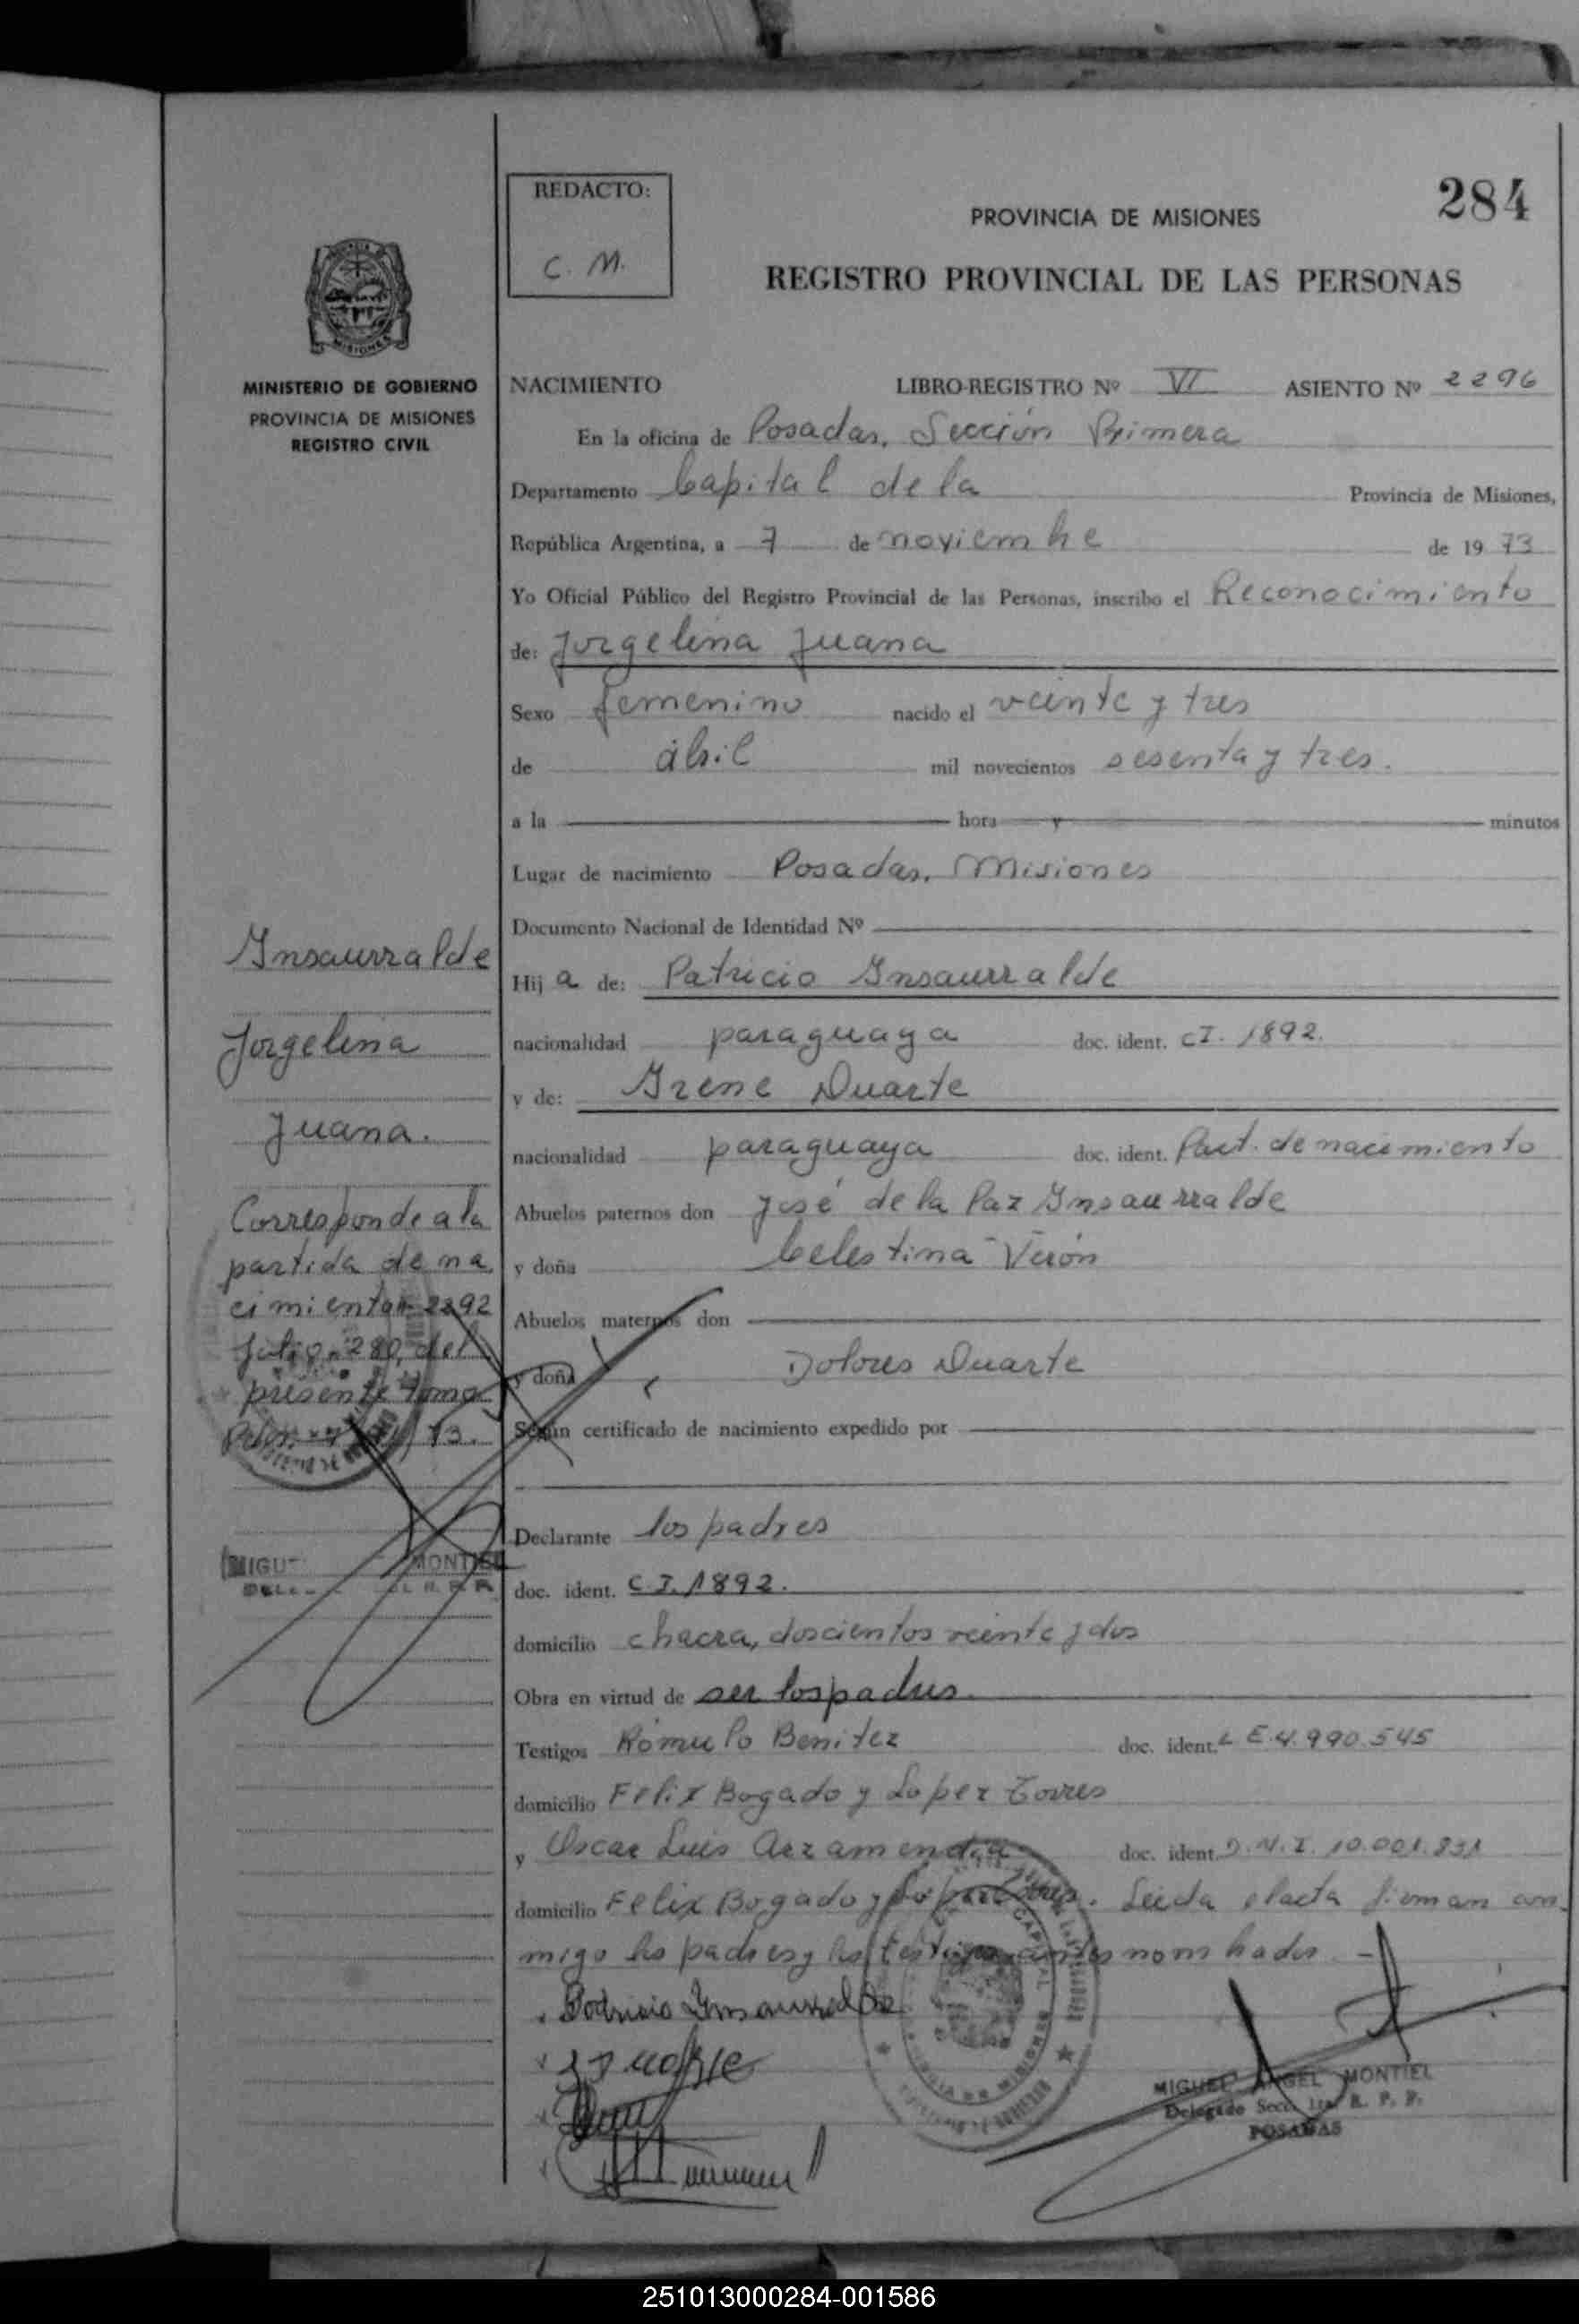 284
REDACTO:
C. M.
PROVINCIA DE MISIONES
REGISTRO PROVINCIAL DE LAS PERSONAS
MISIONES
MINISTERIO DE GOBIERNO
PROVINCIA DE MISIONES
REGISTRO CIVIL
NACIMIENTO LIBRO-REGISTRO Nº VI ASIENTO Nº 2296
En la oficina de Posadas, Sección Primera
Departamento Capital de la Provincia de Misiones,
República Argentina, a 7 de noviembre de 1973
Yo Oficial Público del Registro Provincial de las Personas, inscribo el Reconocimiento
de: Jorgelina Juana
Sexo femenino nacido el veinte y tres
de abril mil novecientos sesenta y tres.
a la hora y minutos
Lugar de nacimiento Posadas, Misiones
Documento Nacional de Identidad Nº
Hija de: Patricio Insaurralde
nacionalidad paraguaya doc. ident. CI. 1892.
y de: Irene Duarte
nacionalidad paraguaya doc. ident. Part. de nacimiento
Abuelos paternos don José de la Paz Insaurralde
y doña Celestina Verón
Abuelos maternos don
y doña Dolores Duarte
Según certificado de nacimiento expedido por
Declarante los padres
doc. ident. C.I. 1892.
domicilio chacra, doscientos veinte y dos
Obra en virtud de ser los padres.
Testigos Rómulo Benitez doc. ident. L E. 4.990.545
domicilio Felix Bogado y Lopez Torres
y Oscar Luis Arzamendia doc. ident. D.N.I. 10.001.831
domicilio Felix Bogado y Lopez Torres. Leida el acta firman con
migo los padres y los testigos antes nombrados. -
Patricio Insaurralde
I Duarte
MIGUEL ANGEL MONTIEL
Delegado Secc. 1ra. R. P. P.
POSADAS
Insaurralde
Jorgelina
Juana.
Corresponde a la
partida de na
cimiento 2292
folio 280, del
presente tomo
73.
MONTIEL
251013000284-001586